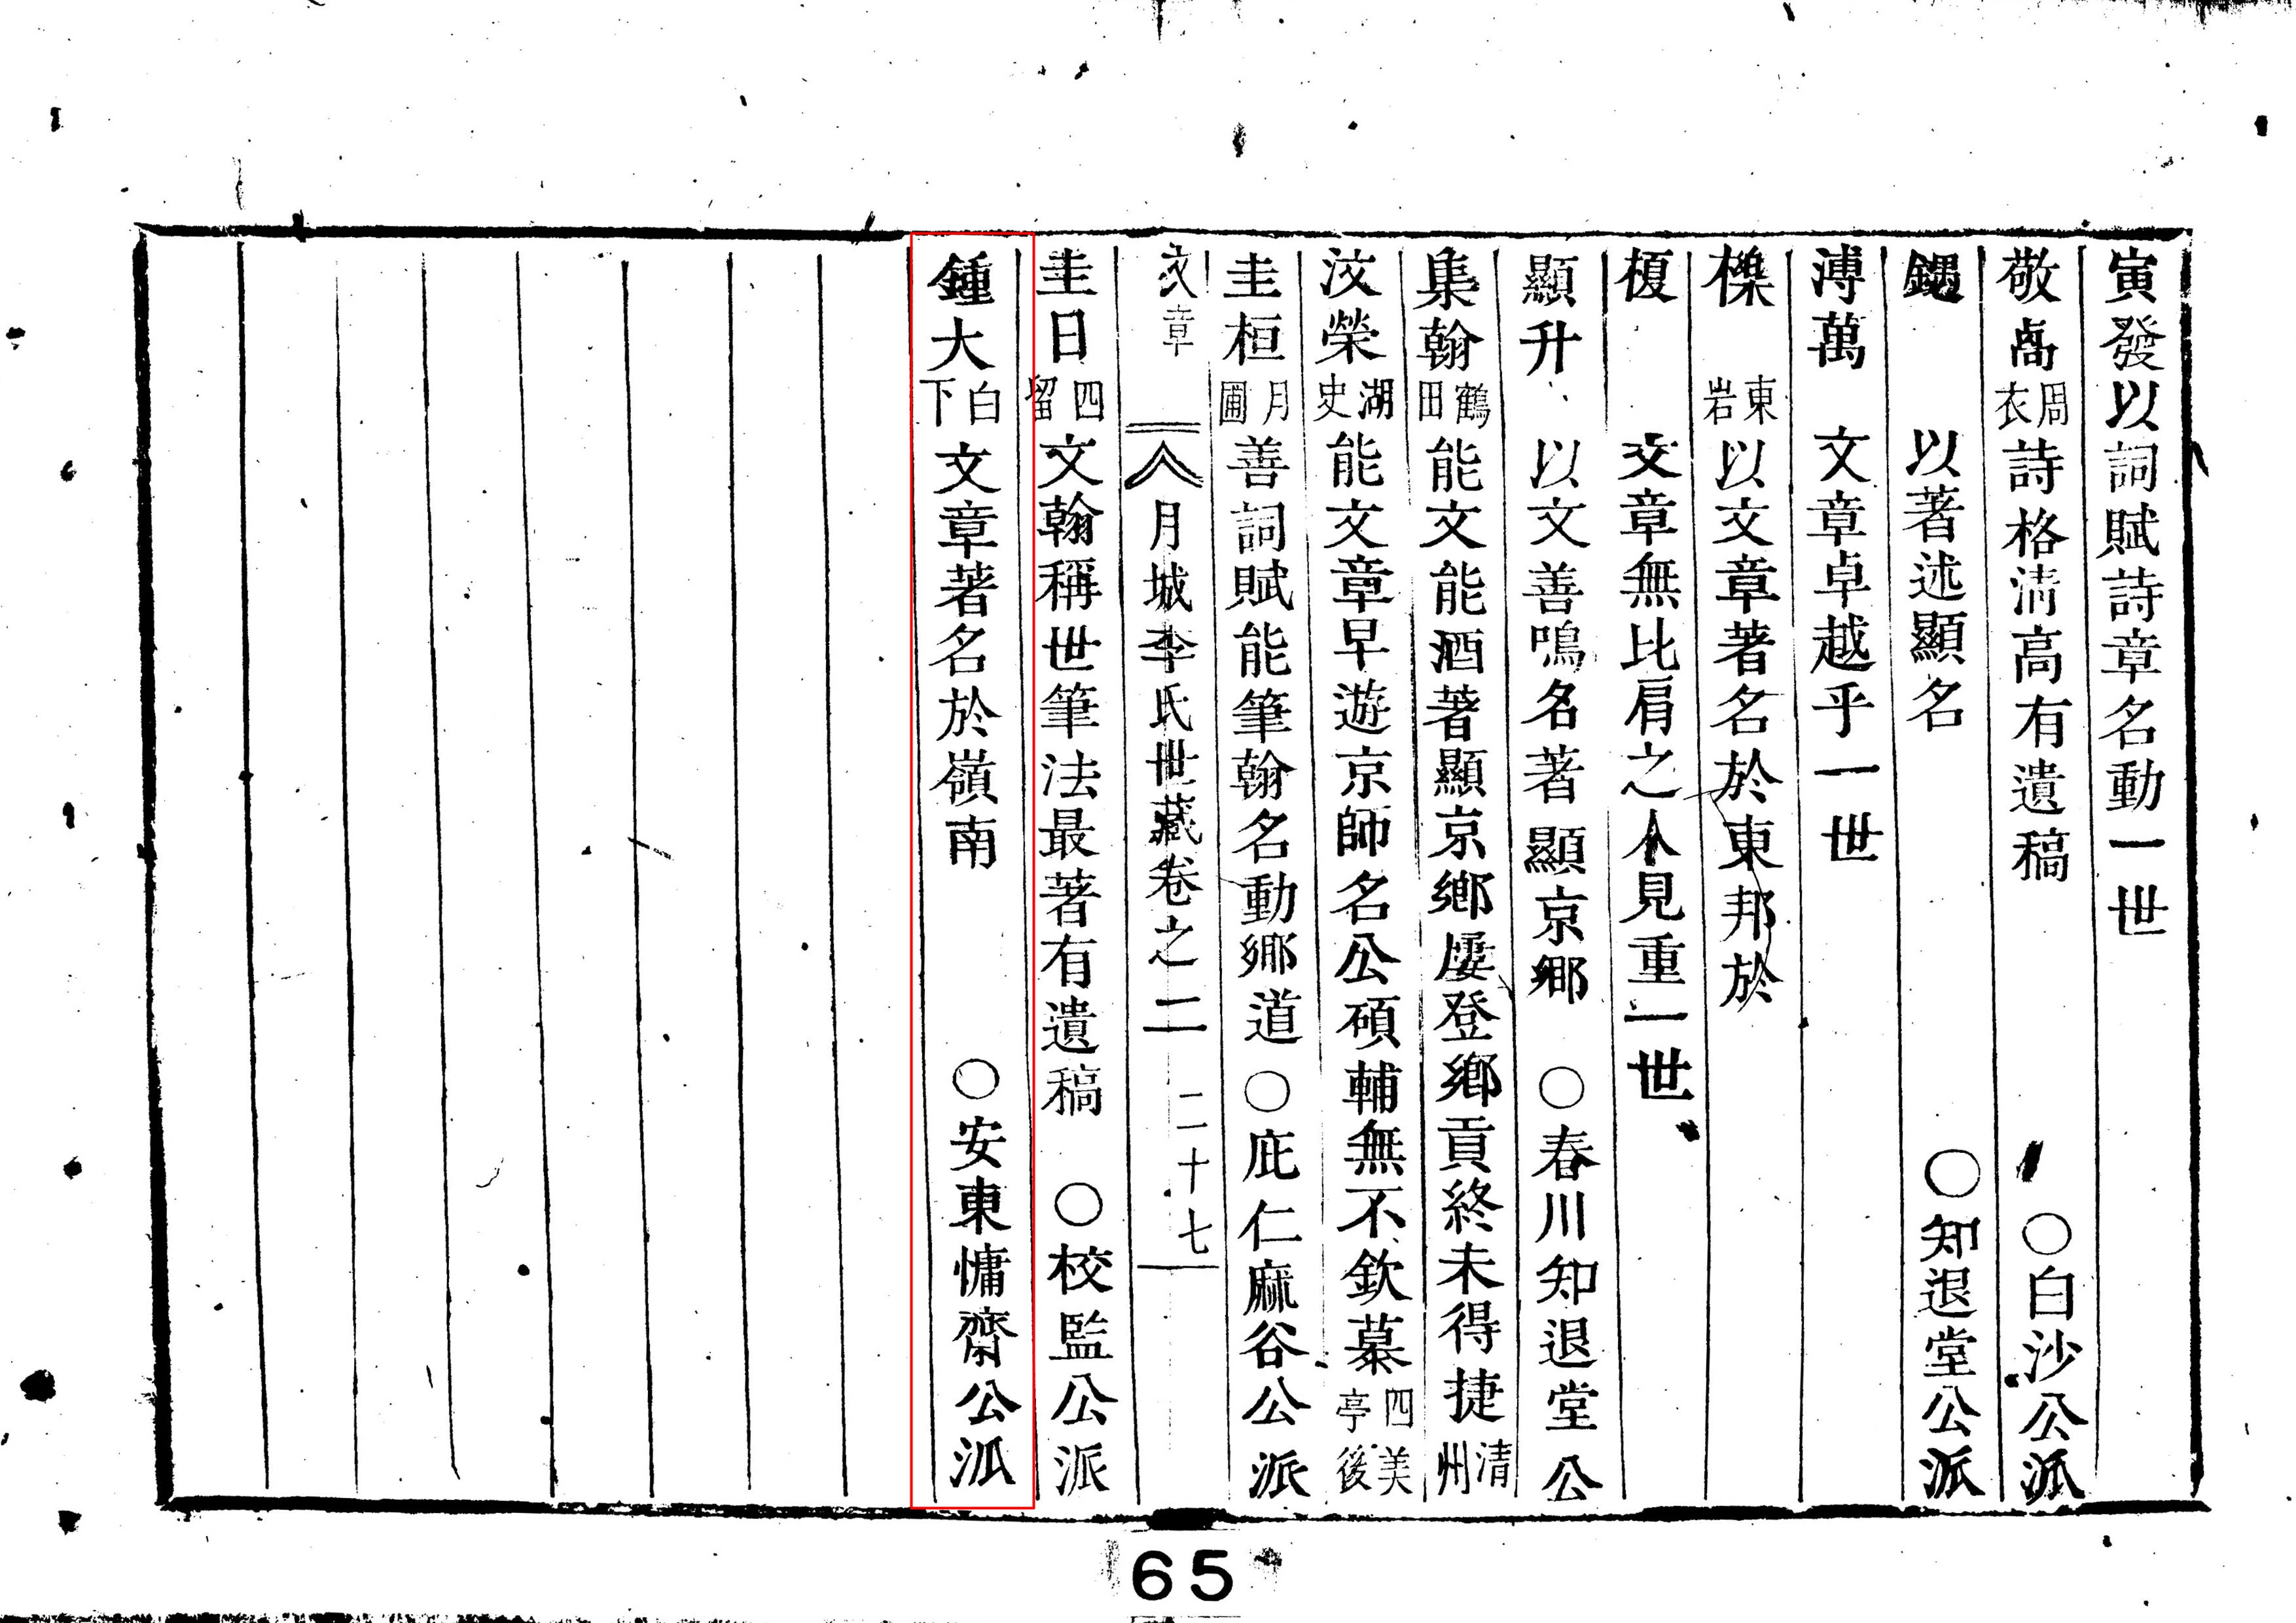 寅發以詞賦詩章名動一世
敬卨周衣詩格淸高有遺稿 〇白沙公派
鍶以著述顯名 〇知退堂公派
溥萬 文章卓越乎一世
櫟東岩以文章著名於東邦於
榎 文章無比肩之人見重一世
顯升 以文善鳴名著顯京鄉 〇春川知退堂公
集翰鶴田能文能酒著顯京鄉屢登鄉貢終未得捷淸州
汶榮湖史能文章早遊京師名公碩輔無不欽慕四美亭後
圭桓月圃善詞賦能筆翰名動鄉道 〇庇仁麻谷公派
文章 月城李氏世藏卷之二 二十七
圭日四留文翰稱世筆法最著有遺稿 〇校監公派
鍾大白下文章著名於嶺南 〇安東慵齋公派
65